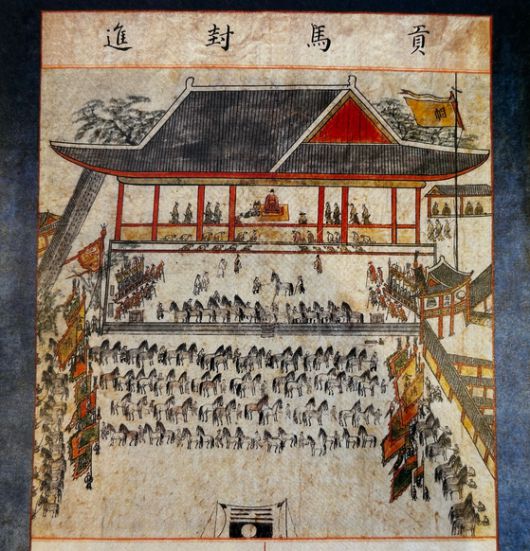 貢馬封進
帥